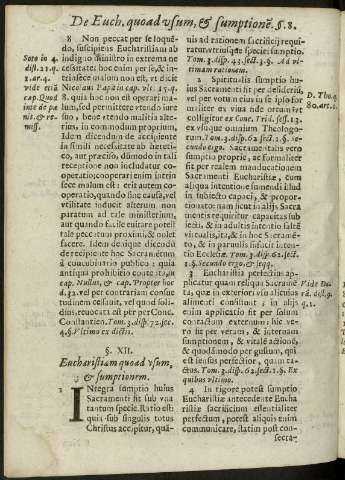 De Euch. quoad vsum, & sumptionē. §. 8.
8 Non peccat per se loquē-
do, suscipiens Eucharistiam ab
indigno ministro in extrema ne
cessitate: hoc enim per se, & in-
trinsece malum non est, vt dicit
Nicolaus Papa in cap. vlt. 15. q.
8. quia hoc non est operari ma-
lum, sed permittere vtendo iure
suo, bene vtendo malitia alte-
rius, in commodum proprium.
Idem dicendum de recipiente
in simili necessitate ab hereti-
co, aut præciso, dūmodo in tali
receptione non includatur co-
operatio; cooperari enim intrin
sece malum est: erit autem co-
operatio, quando sine causa, vel
vtilitate inducit alterum non
paratum ad tale ministerium,
aut quando facile euitare potest
tale peccatum proximi, & nolet
facere. Idem denique dicendū
de recipiente hoc Sacramentū
à concubinario publico: quia
antiqua prohibitio contenta, in
cap. Nullus, & cap. Propter hoc
d. 32. vel per contrariam consue
tudinem cessauit, vel quod soli-
dius, reuocata est per per Conc.
Constantien. Tom. 3. disp. 72. sec.
4. §. Vltimo ex dictis.
§. XII.
Eucharistiam quoad vsum,
& sumptionem.
1 INtegra sumptio huius
Sacramenti fit sub vna
tantum specie. statio est:
quia sub singulis totus
Christus accipitur, quā-
Soto in 4.
dist. 21. q.
2. ar. 4.
vide etiā
cap. Quod
in te de pœ
nis. & re-
miss.
uis ad rationem sacrificij requi-
ratur vtriusque speciei sumptio.
Tom. 3. disp. 43. sect. 3. §. Ad vl-
timam rationem.
2 Spiritualis sumptio hu-
ius Sacramenti pro iustificari,
vel per votum eius in se ipso for
maliter ex vi huius vide ordinatur
colligitur ex Conc. Trid. sess. 13.
ex visque omnium Theologo-
rum. Tom. 3. disp. 62. sect. 1. §. Se-
cundo ergo. Sacramentalis vero
sumptio proprie, ac formaliter
fit per realem manducationem
Sacramenti Eucharistiæ, cum
aliqua intentione sumendi illud
in subiecto capaci, & propor-
tionato: nam sicut in alijs Sacra
mentis requiritur capacitas sub
iecti, & in adultis intentio salté
virtualis, ita & in hoc Sacramē-
to, & in paruulis sufficit inten-
tio Ecclesiæ. Tom. 3. disp. 62. sect.
1. §. Secundo ergo, & seqq.
3 Eucharistia perfectius ap-
plicatur quam reliqua Sacramē
ta, quia exteriori vsu alienius
alimenti consistunt; in alijs
enim applicatio fit per solum
contactum externum: hic ve-
ro fit per veram, & internam
sumptionem, & vitalē actionē,
& quodammodo per gustum, qui
est sensus perfectior, quam ta-
ctus. Tom. 3. disp. 62. sect. 1. §. Ex
quibus vltimo.
4 In rigore potest sumptio
Eucharistiæ antecedente Eucha
ristiæ sacrificium essentialiter
perfectum, potest aliquis enim
communicare, statim post con-
secra-
D. Tho. q.
80. art. 1.
Vide Du-
rā. dist. 9.
q. 1.